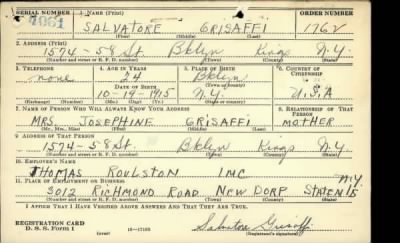 SERIAL NUMBER 1. NAME (Print) ORDER NUMBER
SALVATORE GRISAFFI 1762
(First) (Middle) (Last)
2. ADDRESS (Print)
1574-58 St. Bklyn Kings N.Y.
(Number and street or R. F. D. number) (Town) (County) (State)
3. TELEPHONE 4. AGE IN YEARS 5. PLACE OF BIRTH 6. COUNTRY OF CITIZENSHIP
none 24 Bklyn
DATE OF BIRTH (Town or county)
10-19-1915 N.Y. U.S.A
(Exchange) (Number) (Mo.) (Day) (Yr.) (State or country)
7. NAME OF PERSON WHO WILL ALWAYS KNOW YOUR ADDRESS 8. RELATIONSHIP OF THAT PERSON
MRS. JOSEPHINE GRISAFFI MOTHER
(Mr., Mrs., Miss) (First) (Middle) (Last)
9. ADDRESS OF THAT PERSON
1574-58 St. Bklyn Kings N.Y.
(Number and street or R. F. D. number) (Town) (County) (State)
10. EMPLOYER'S NAME
THOMAS ROULSTON INC
11. PLACE OF EMPLOYMENT OR BUSINESS N.Y.
3012 RICHMOND ROAD NEW DORP STATEN IS
(Number and street or R. F. D. number) (Town) (County) (State)
I AFFIRM THAT I HAVE VERIFIED ABOVE ANSWERS AND THAT THEY ARE TRUE.
REGISTRATION CARD
D. S. S. Form 1 (over) 16-17105 Salvatore Grisaffi
(Registrant's signature)